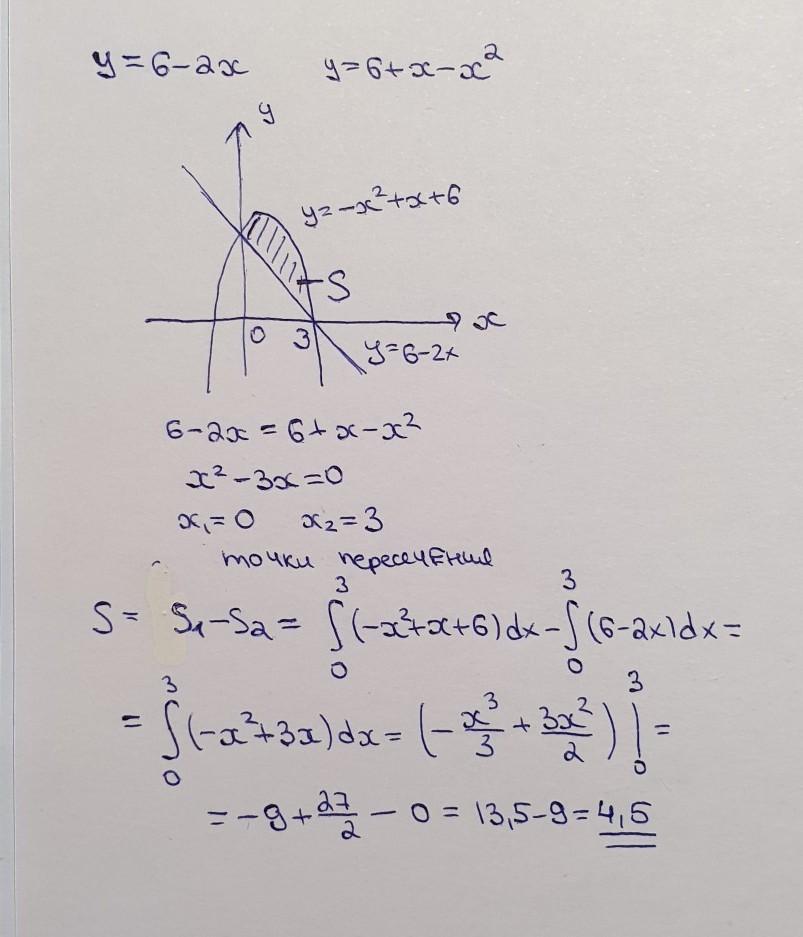 y=6-2x y=6+x-x²
y
y=-x²+x+6
S
0 3 x
y=6-2x
6-2x=6+x-x²
x²-3x=0
x₁=0 x₂=3
точки пересечения
S= S₁-S₂= ∫₀³(-x²+x+6)dx-∫₀³(6-2x)dx=
=∫₀³(-x²+3x)dx=(-x³/3+3x²/2)|₀³=
=-9+27/2-0=13,5-9=4,5